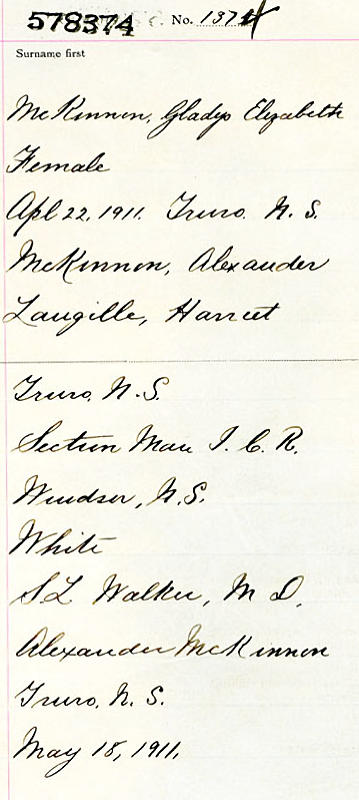 578374 No. 1374
Surname first
McKinnon, Gladys Elizabeth
Female
Apl 22, 1911. Truro. N. S.
McKinnon, Alexander
Langille, Harriet
Truro. N. S.
Section Man I. C. R.
Windsor, N. S.
White
S. L. Walker, M D.
Alexander McKinnon
Truro. N. S.
May 18, 1911.